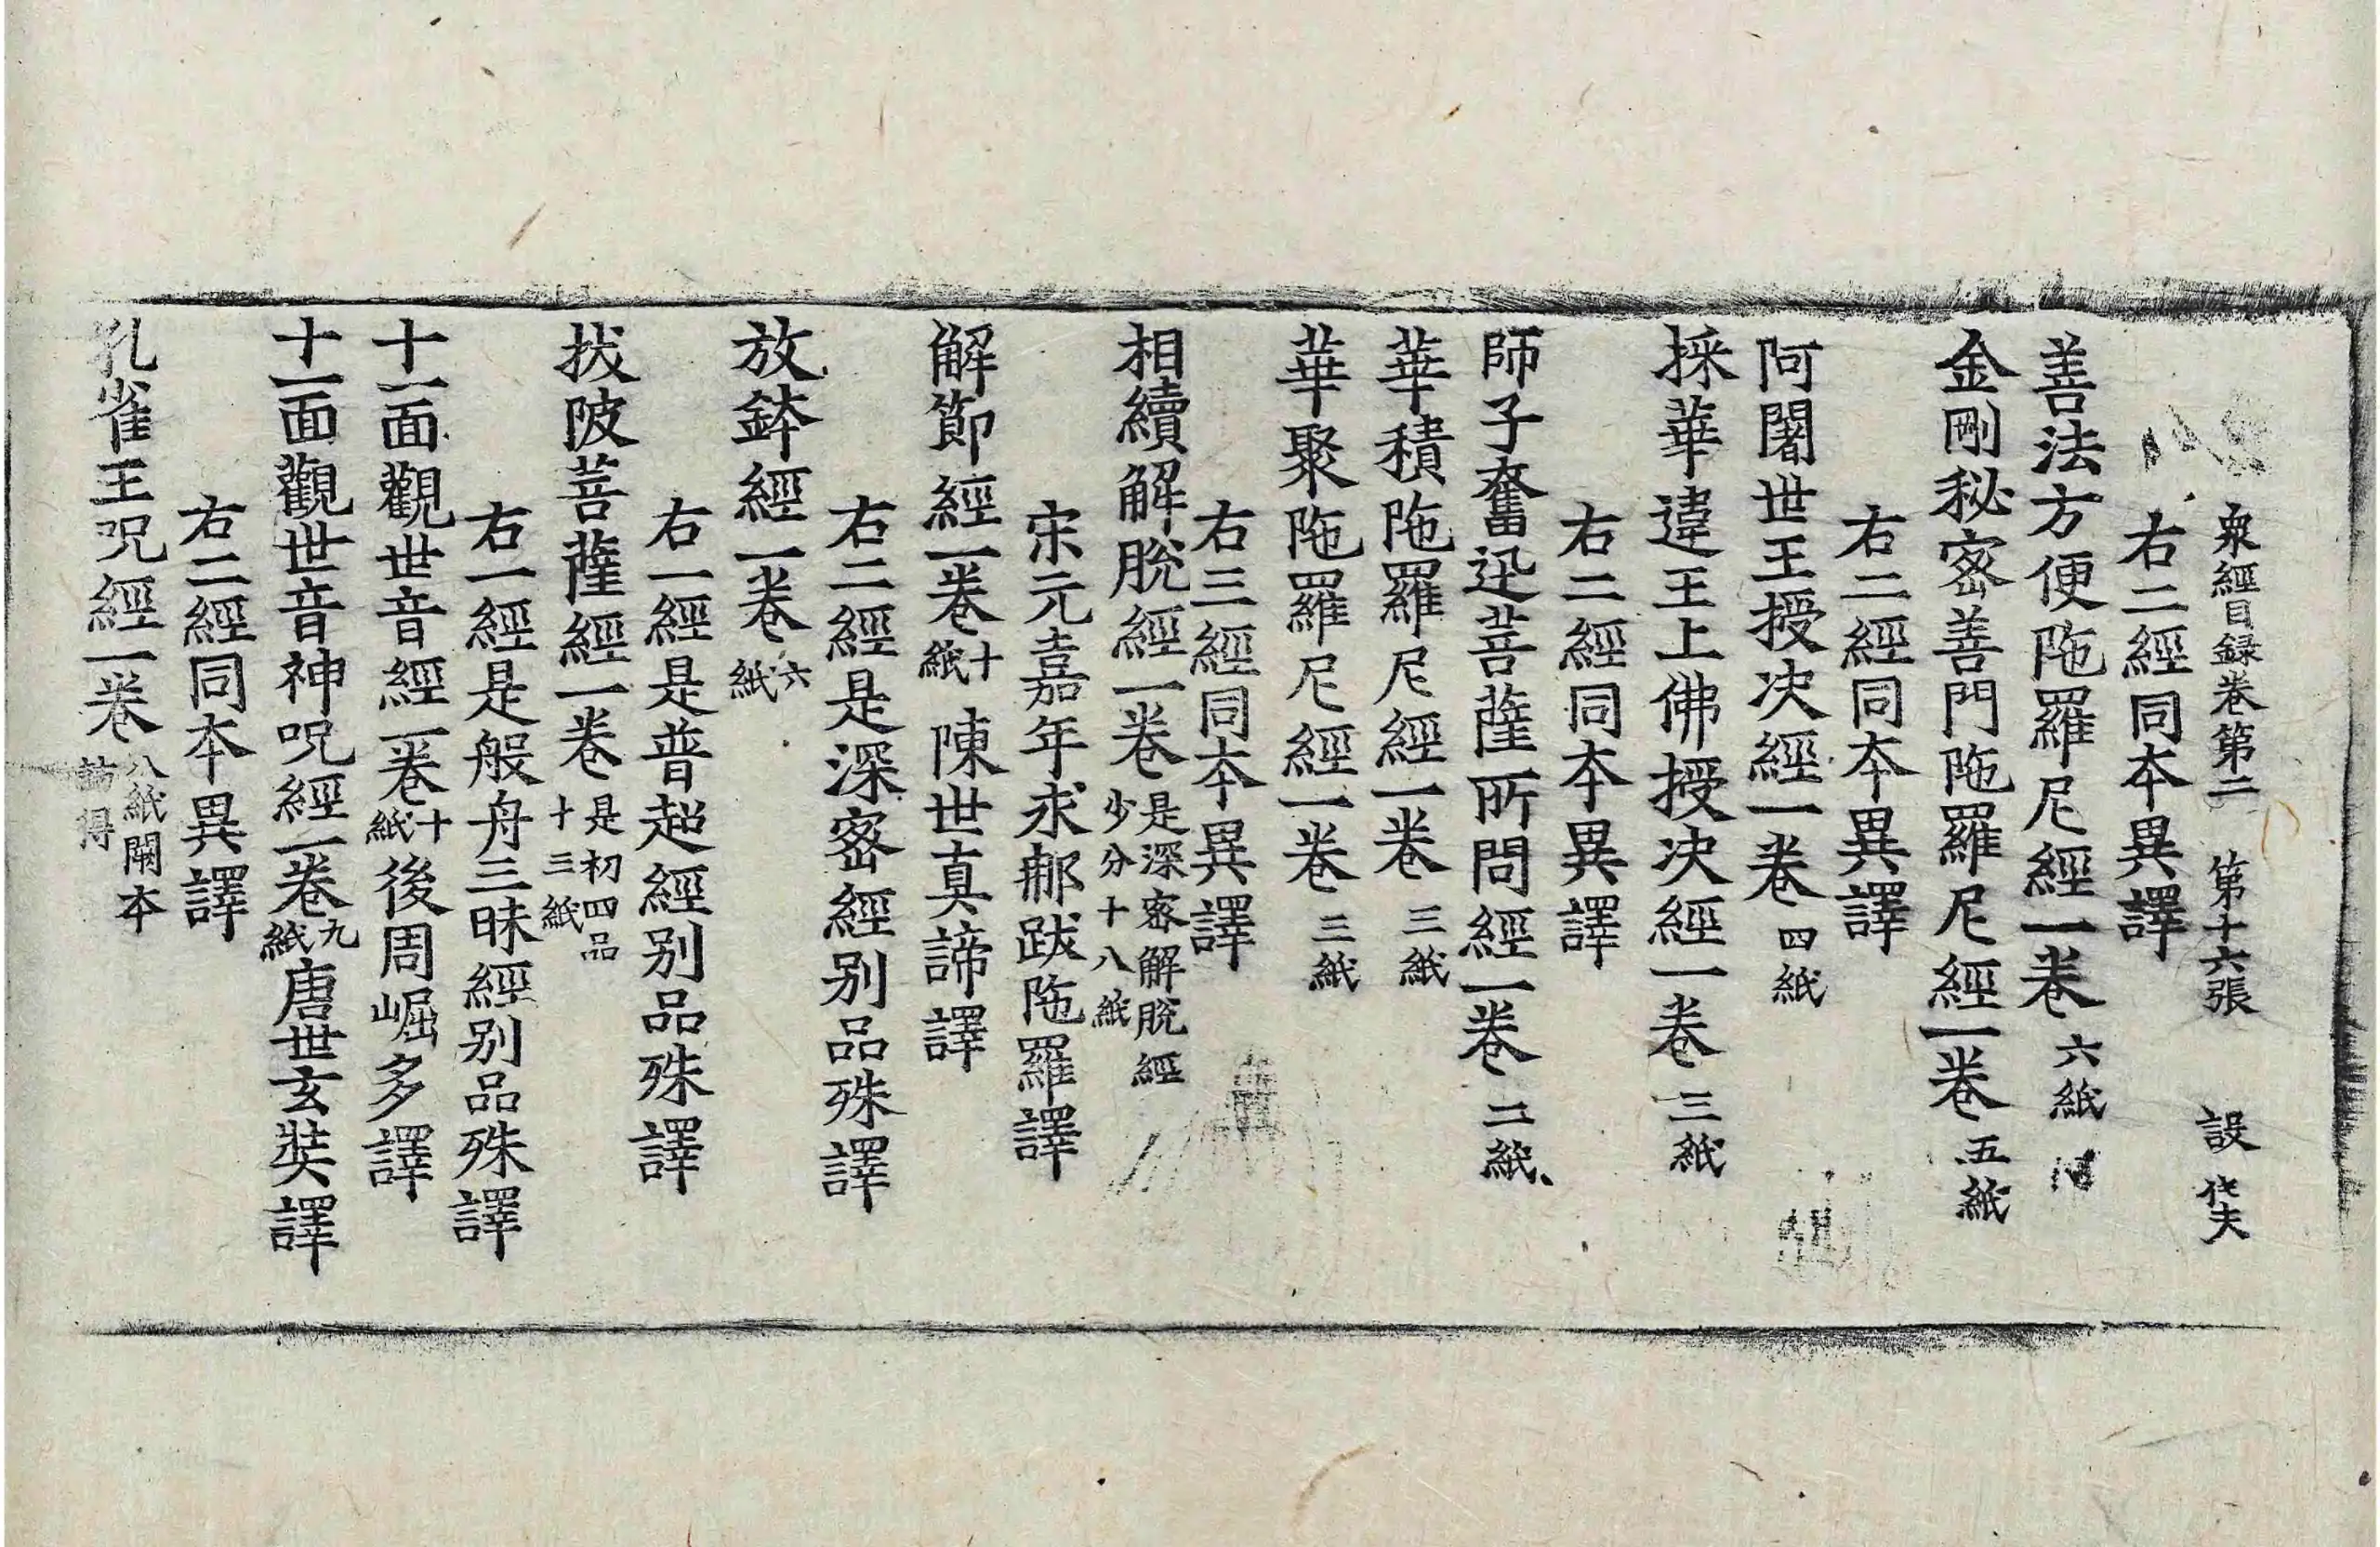 衆經目録卷第二 第十六張 設
右二經同本異譯
善法方便陁羅尼經一卷 六紙
金剛秘密善門陁羅尼經一卷 五紙
右二經同本異譯
阿闍世王授决經一卷 四紙
採華違王上佛授决經一卷 三紙
右二經同本異譯
師子奮迅菩薩所問經一卷 二紙
華積陁羅尼經一卷 三紙
華聚陁羅尼經一卷 三紙
右三經同本異譯
相續解脫經一卷 是深密解脫經
少分十八紙
宋元嘉年求郍跋陁羅譯
解節經一卷 十紙 陳世真諦譯
右二經是深密經别品殊譯
放鉢經一卷 六紙
右一經是普超經别品殊譯
拔陂菩薩經一卷 是初四品
十三紙
右一經是般舟三昧經别品殊譯
十一面觀世音經一卷 十紙 後周崛多譯
十一面觀世音神呪經一卷 九紙 唐世玄奘譯
右二經同本異譯
孔雀王呪經一卷 八紙闕本
訪得